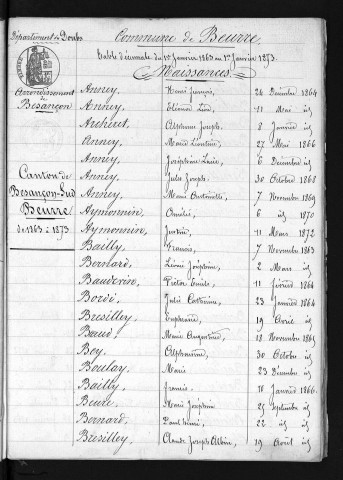 Département du Doubs
Commune de Beurre.
Table décennale du 1er Janvier 1863 au 1er Janvier 1873.
Naissances.
Arrondissement de Besançon
Canton de Besançon-Sud
Beurre
de 1863 à 1873
Anney, Henri François, 24 Décembre 1864
Anney, Eléonor Léon, 11 Mai id
Alphonse Joseph, 8 Janvier id
Anney, Marie Léontine, 27 Mai 1866
Anney, Joséphine Laure, 6 Décembre id
Anney, Jules Joseph, 30 Octobre 1868
Anney, Marie Antoinette, 7 Novembre 1869
Aymonnin, Amélie, 6 id 1870
Aymonnin, Justin, 11 Mars 1872
Bailly, Francis, 7 Novembre 1863
Bernard, Léonie Joséphine, 2 Mars id
Bauderin, Victor Emile, 11 février 1864
Bordi, Julie Catherine, 23 Janvier 1864
Bresilley, 19 Avril id
Bœuf, Marie Augustine, 18 Novembre 1865
Boy, Alphonsine, 30 Octobre id
Boulay, Marie, 23 Décembre id
Bailly, francis, 10 Janvier 1866
Beure, Marie Joséphine, 25 Septembre id
Bernard, Paul Rémi, 22 id id
Bresilley, Claude Joseph Albin, 19 Août id